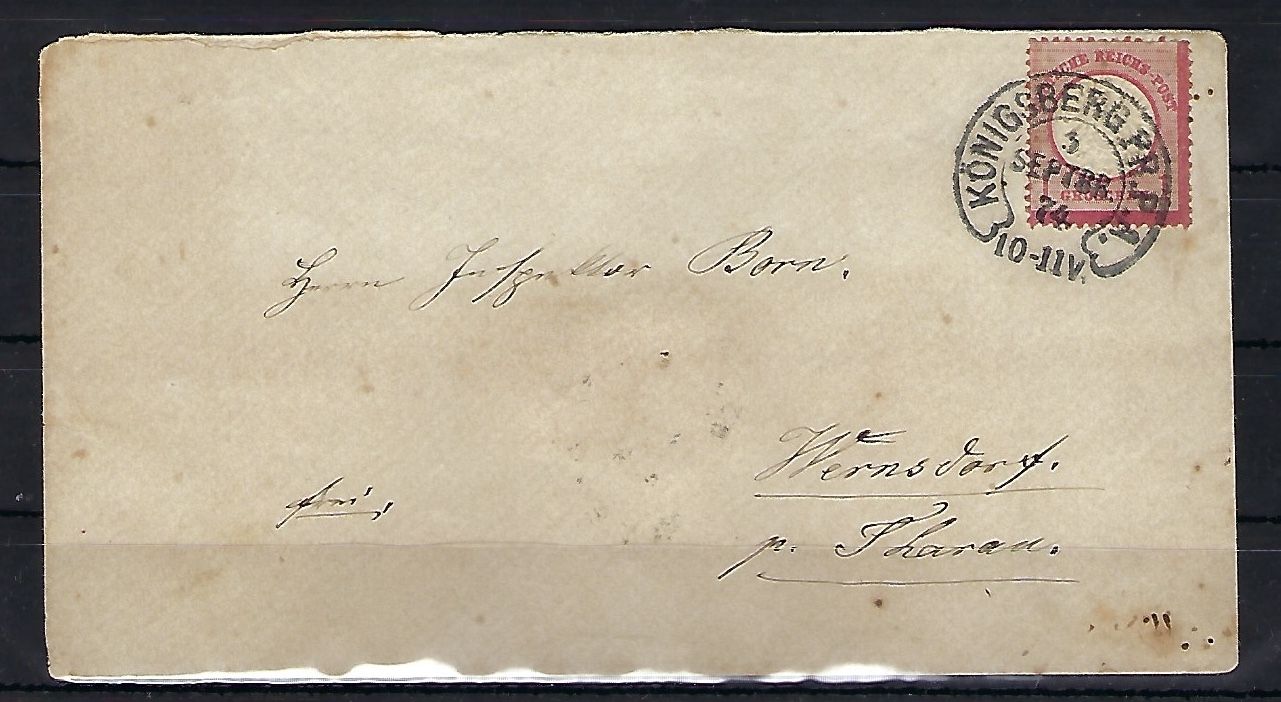 DEUTSCHE REICHS-POST
GROSCHEN
KÖNIGSBERG PR. P.A.
3
SEPTBR.
74
10-11V.
Herrn Inspektor Born.
Wernsdorf.
frei.
p. Tharau.